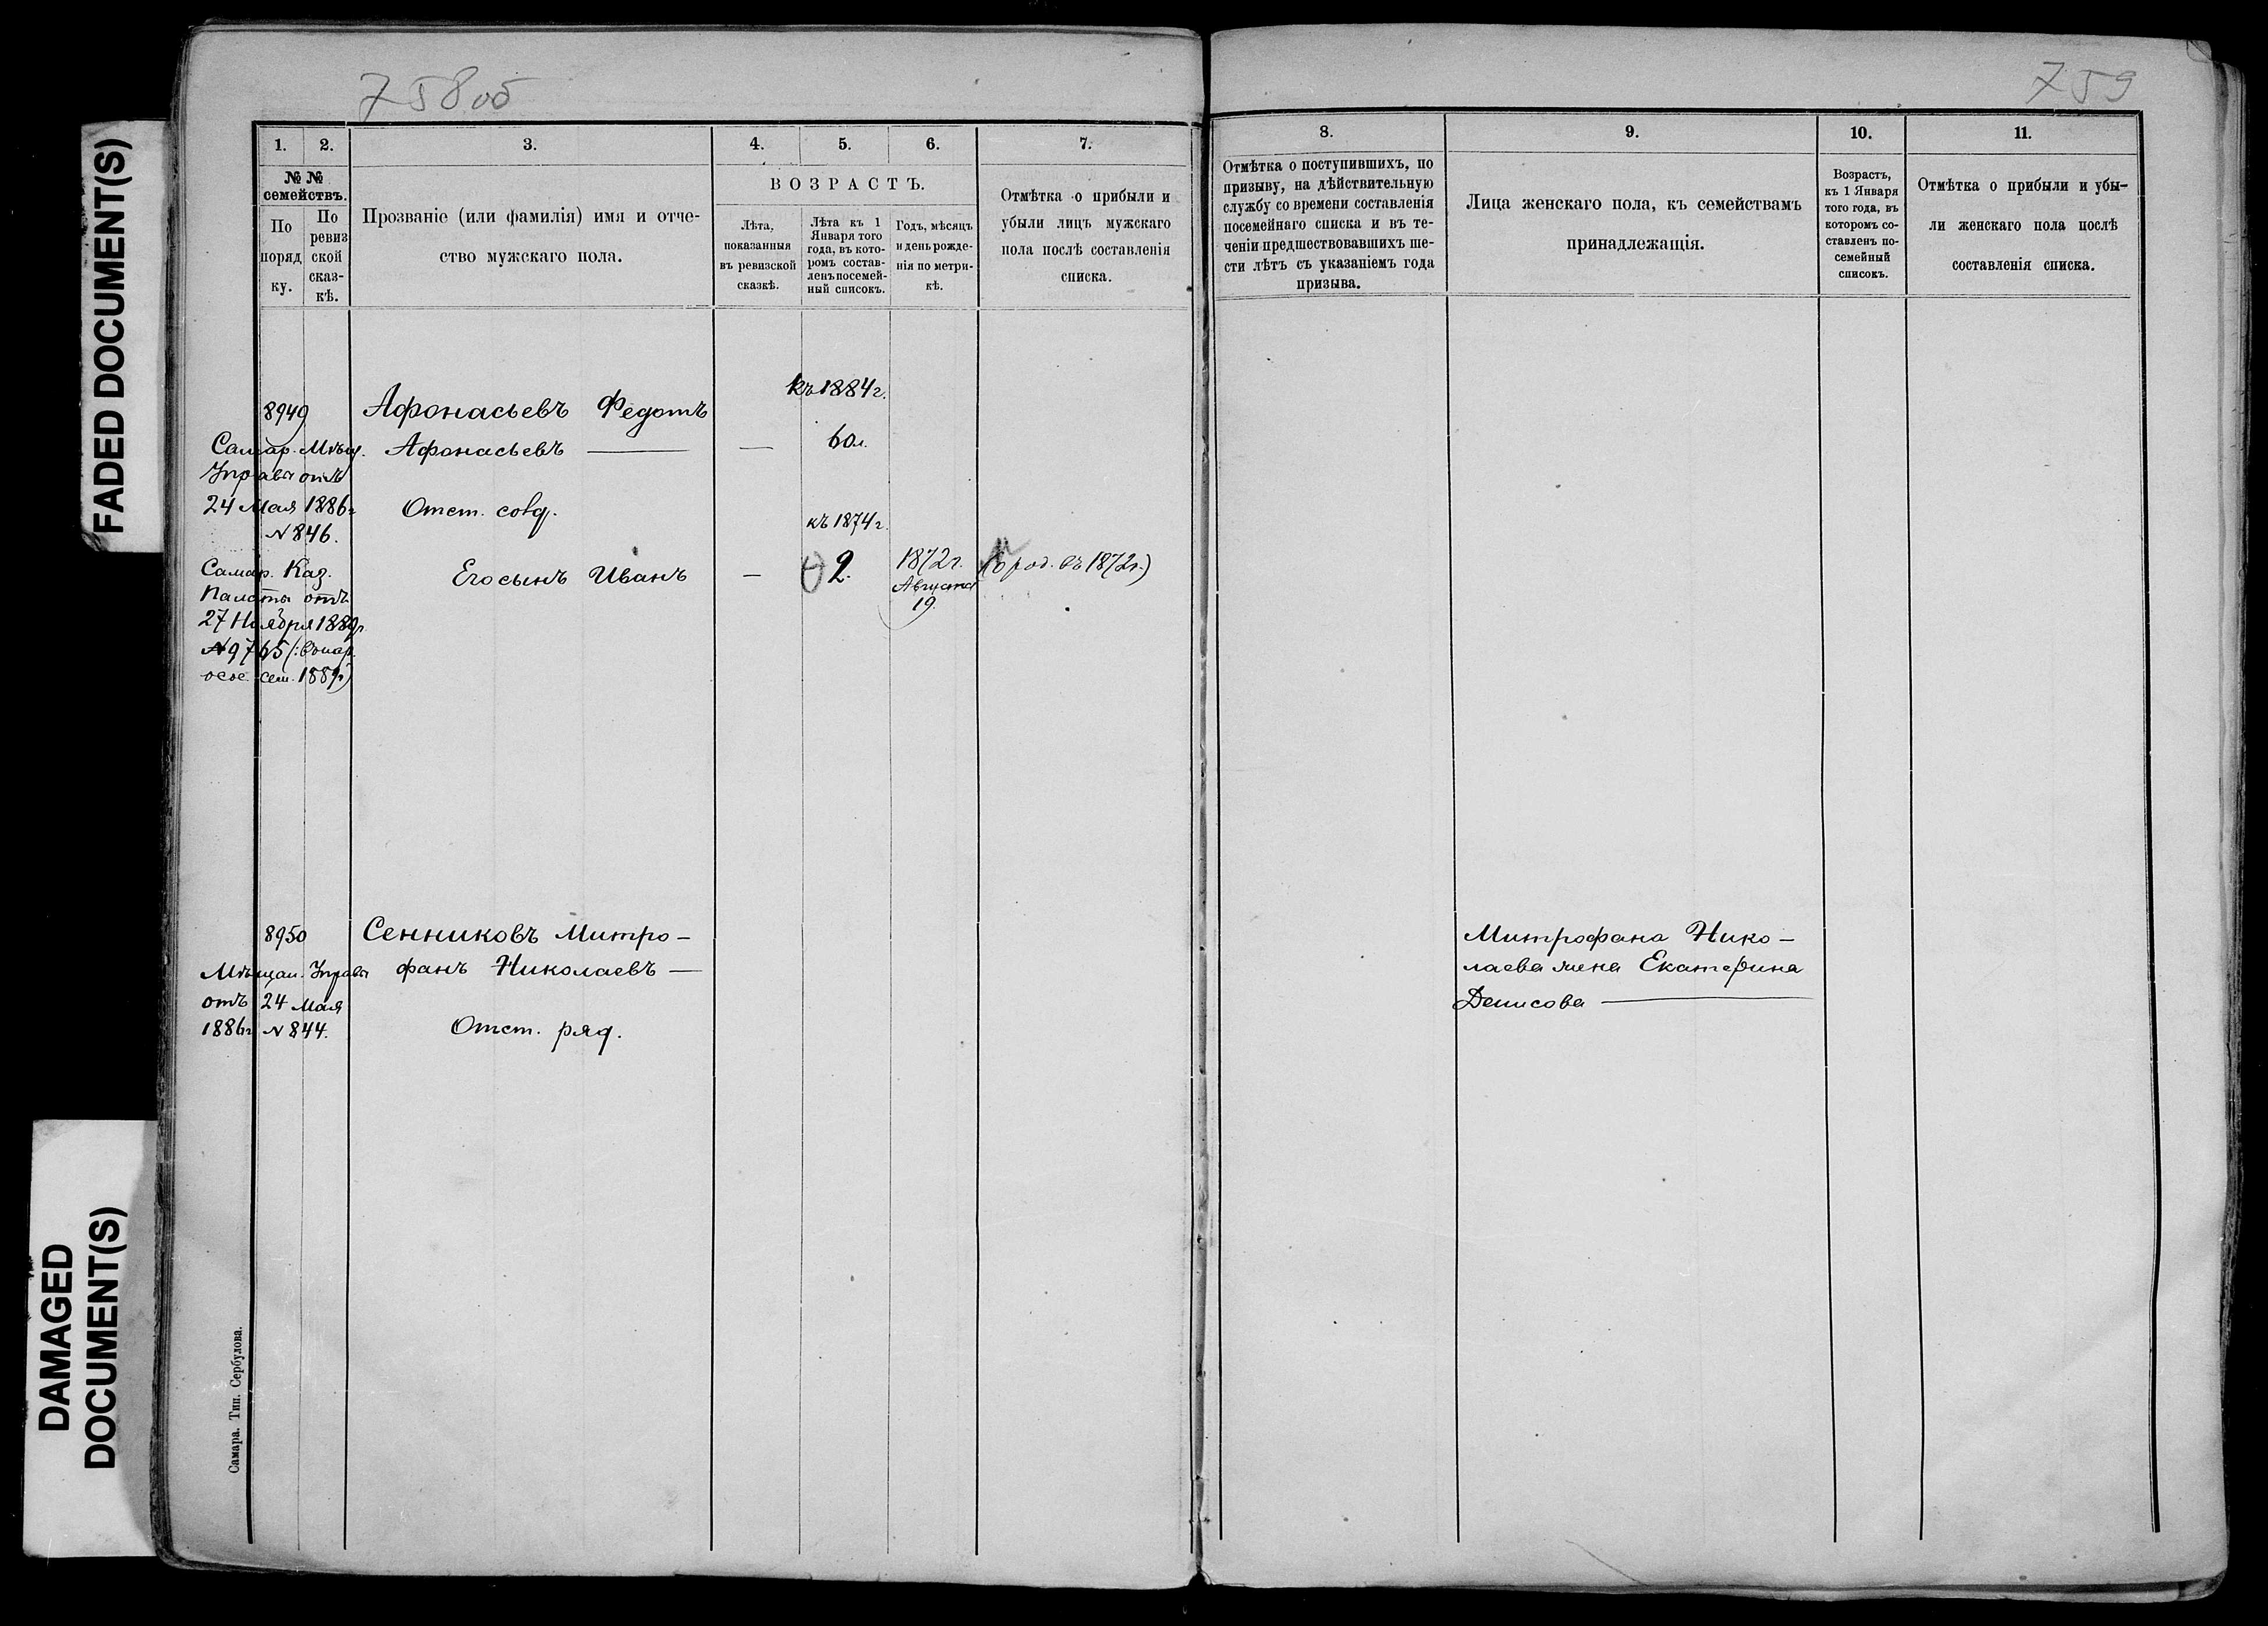 FADED DOCUMENT(S)
DAMAGED
DOCUMENT(S)
758 об
1. 2. 3. 4. 5. 6. 7.
№ №
семействъ.
По
поряд
ку.
По
ревиз
ской
сказ-
кѣ.
Прозваніе (или фамилія) имя и отче-
ство мужскаго пола.
ВОЗРАСТЪ.
Лѣта,
показанныя
въ ревизской
сказкѣ.
Лѣта къ 1
Января того
года, въ кото-
ромъ состав-
ленъ посемей-
ный списокъ.
Годъ, мѣсяцъ
и день рожде-
нія по метри-
кѣ.
Отмѣтка о прибыли и
убыли лицъ мужскаго
пола послѣ составленія
списка.
къ 1884 г.
8949 Афонасьевъ Федотъ
Афонасьевъ — — 60 л.
Самар. Мѣщ.
Управы отъ
24 Мая 1886 г
№ 846.
Отст.
къ 1874 г.
Егосынъ Иванъ — 2. 1872 г. Августа 19. род. въ 1872 г.)
Самар. Каз.
Палаты отъ
27 Ноября
№ 9765
8950 Сенниковъ Митро-
фанъ Николаевъ —
Мѣщан. Управы
отъ 24 Мая
1886 г. № 844.
Отст. ряд.
Самара. Тип. Сербулова.
759
8. 9. 10. 11.
Отмѣтка о поступившихъ, по
призыву, на дѣйствительную
службу со времени составленія
посемейнаго списка и въ те-
ченіи предшествовавшихъ ше-
сти лѣтъ съ указаніемъ года
призыва.
Лица женскаго пола, къ семействамъ
принадлежащія.
Возрастъ,
къ 1 Января
того года, въ
которомъ со-
ставленъ по-
семейный
списокъ.
Отмѣтка о прибыли и убы-
ли женскаго пола послѣ
составленія списка.
Митрофана Нико-
лаева жена Екатерина
Денисова —